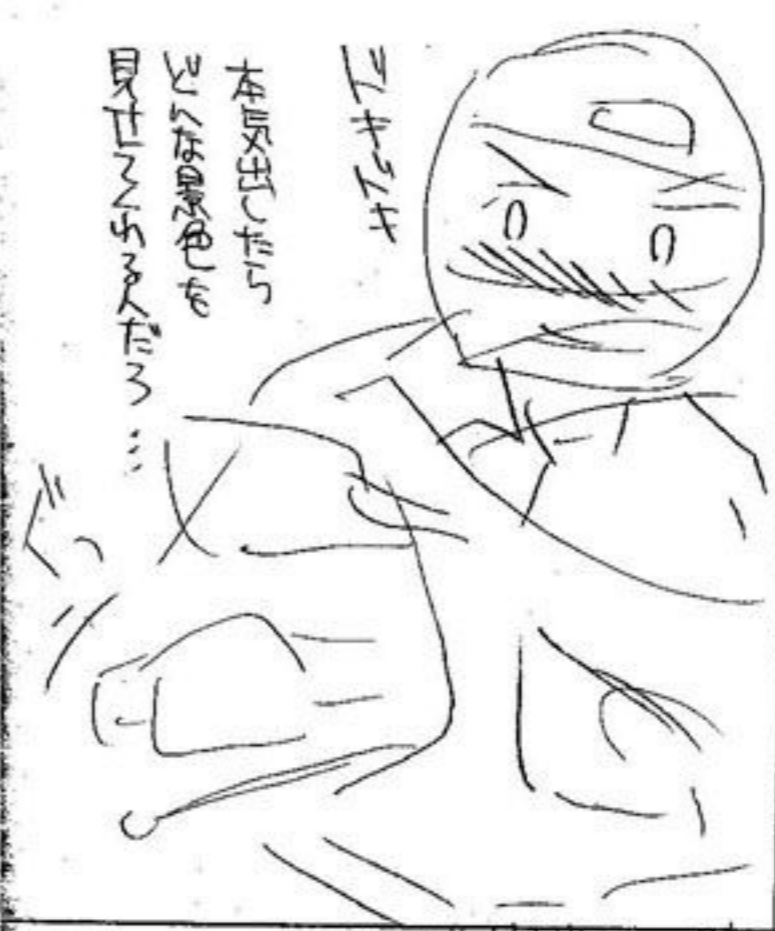 ドキドキ
本気出したら
どんな景色を
見せてくれる人だろ…
ぐっ